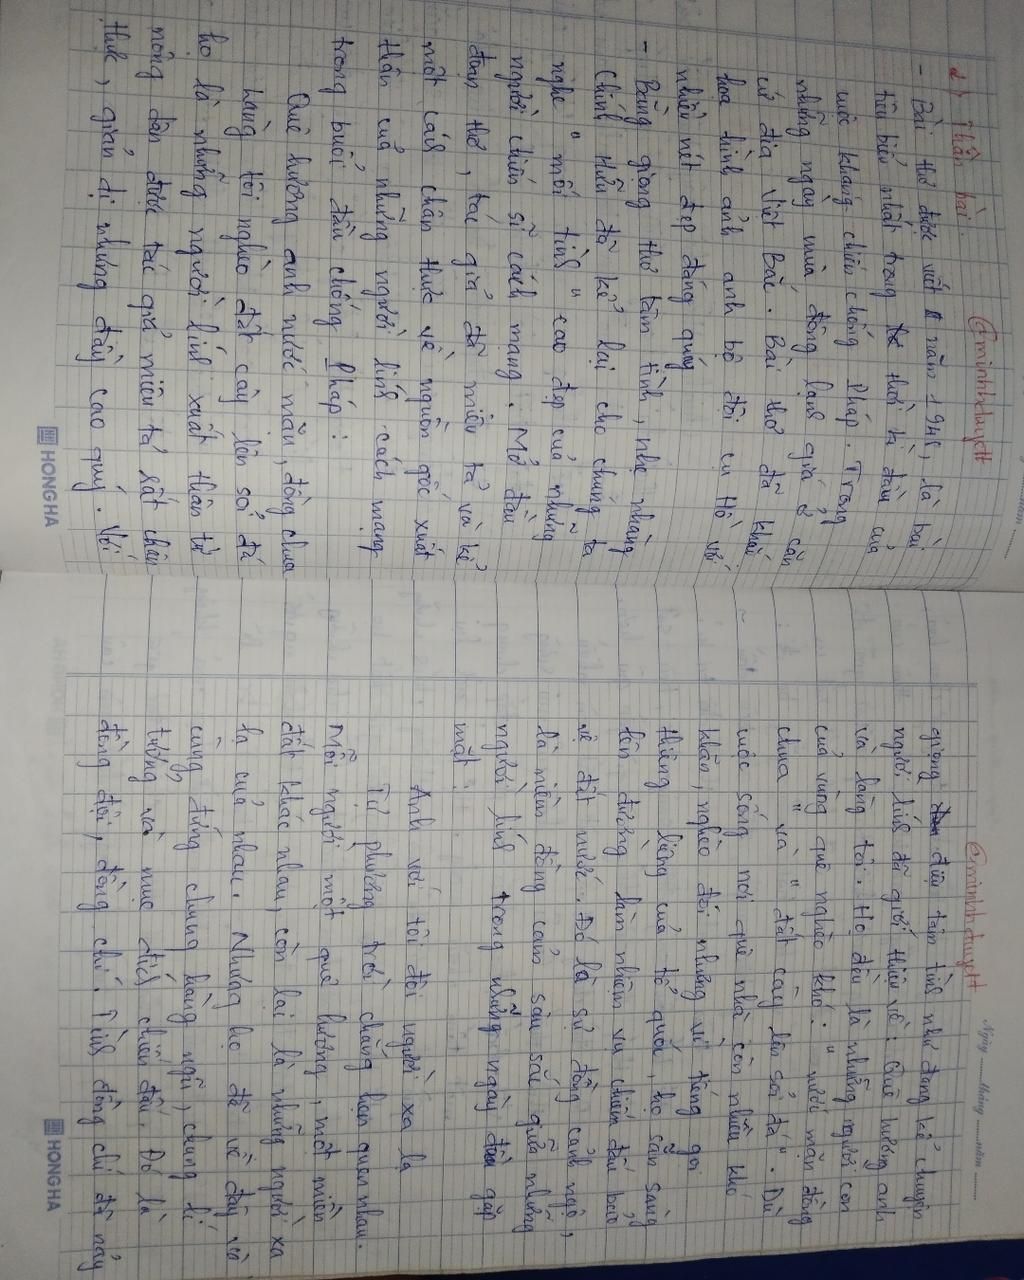 @minhhduyett
2) Thân bài:
- Bài thơ được viết năm 1948, là bài
tiêu biểu nhất trong thời kì đầu của
cuộc kháng chiến chống Pháp. Trong
những ngày mùa đông lạnh giá ở căn
cứ địa Việt Bắc. Bài thơ đã khắc
hoạ hình ảnh anh bộ đội cụ Hồ với
nhiều nét đẹp đáng quý
- Bằng giọng thơ tâm tình, nhẹ nhàng
Chính Hữu đã kể lại cho chúng ta
nghe " mối tình " cao đẹp của những
người chiến sĩ cách mạng. Mở đầu
đoạn thơ, tác giả đã miêu tả và kể
một cách chân thực về nguồn gốc xuất
thân của những người lính cách mạng
trong buổi đầu chống Pháp:
Quê hương anh nước mặn, đồng chua
Làng tôi nghèo đất cày lên sỏi đá
họ là những người lính xuất thân từ
nông dân được tác giả miêu tả rất chân
thực, giản dị nhưng đầy cao quý. Với
HONG HA
@minhhduyett
Ngày Tháng Năm
giọng điệu tâm tình như đang kể chuyện
người lính đã giới thiệu về: Quê hương anh
và làng tôi. Họ đều là những người con
của vùng quê nghèo khó: " nước mặn đồng
chua " và " đất cày lên sỏi đá". Dù
cuộc sống nơi quê nhà còn nhiều khó
khăn, nghèo đói nhưng vì tiếng gọi
thiêng liêng của tổ quốc, họ sẵn sàng
lên đường làm nhiệm vụ chiến đấu bảo
vệ đất nước. Đó là sự đồng cảnh ngộ,
là niềm đồng cảm sâu sắc giữa những
người lính trong những ngày đầu gặp
mặt.
Anh với tôi đôi người xa lạ
Tự phương trời chẳng hẹn quen nhau.
Mỗi người một quê hương, một miền
đất khác nhau, còn lại là những người xa
lạ của nhau. Nhưng họ đã về đây và
cùng đứng chung hàng ngũ, chung lí
tưởng và mục đích chiến đấu. Đó là
đồng đội, đồng chí. Tình đồng chí đã nảy
HONG HA